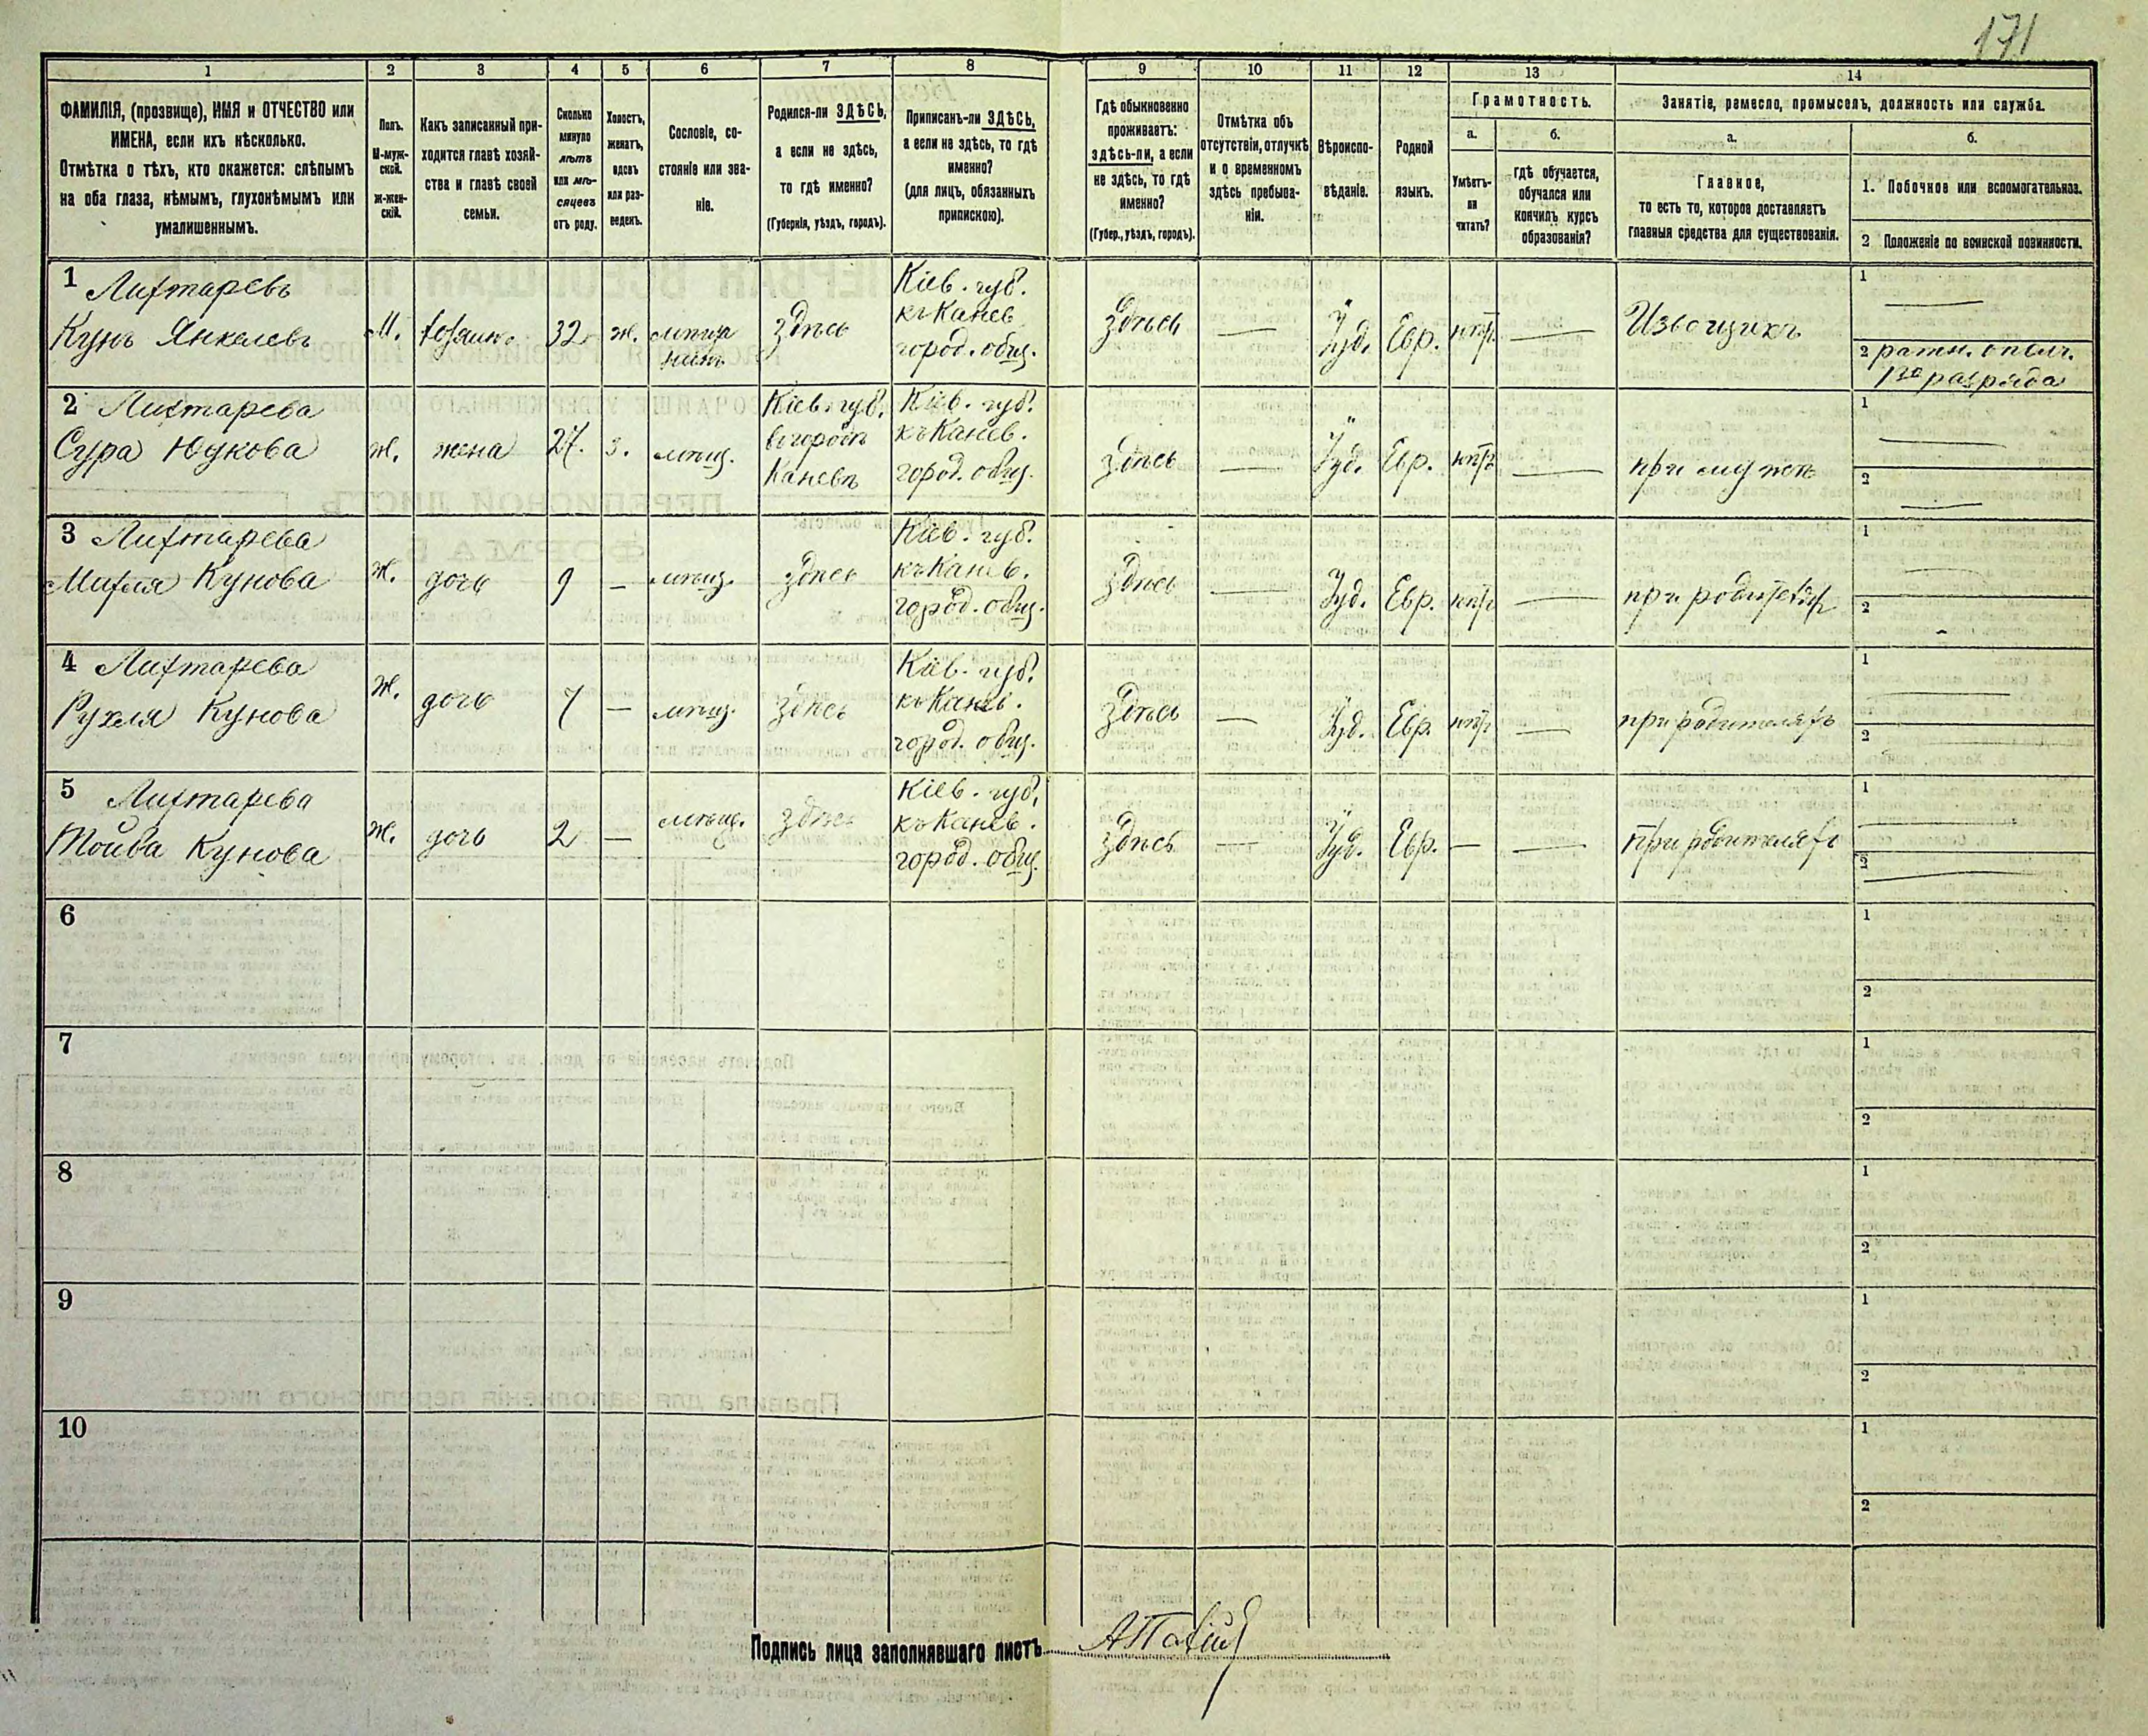 171
1 2 3 4 5 6 7 8 9 10 11 12 13 14
ФАМИЛІЯ, (прозвище), ИМЯ и ОТЧЕСТВО или
ИМЕНА, если ихъ нѣсколько.
Отмѣтка о тѣхъ, кто окажется: слѣпымъ
на оба глаза, нѣмымъ, глухонѣмымъ или
умалишеннымъ.
Полъ.
М-муж-
ской.
ж-жен-
скій.
Какъ записанный при-
ходится главѣ хозяй-
ства и главѣ своей
семьи.
Сколько
минуло
лѣтъ
или мѣ-
сяцевъ
отъ роду.
Холостъ,
женатъ,
вдовъ
или раз-
веденъ.
Сословіе, со-
стояніе или зва-
ніе.
Родился-ли ЗДѢСЬ,
а если не здѣсь,
то гдѣ именно?
(Губернія, уѣздъ, городъ).
Приписанъ-ли ЗДѢСЬ,
а если не здѣсь, то гдѣ
именно?
(для лицъ, обязанныхъ
припискою).
Гдѣ обыкновенно
проживаетъ:
здѣсь-ли, а если
не здѣсь, то гдѣ
именно?
(Губер., уѣздъ, городъ).
Отмѣтка объ
отсутствіи, отлучкѣ
и о временномъ
здѣсь пребыва-
ніи.
Вѣроиспо-
вѣданіе.
Родной
языкъ.
Грамотность.
а.
Умѣетъ-
ли
читать?
б.
гдѣ обучается,
обучался или
кончилъ курсъ
образованія?
Занятіе, ремесло, промыселъ, должность или служба.
а.
Главное,
то есть то, которое доставляетъ
главныя средства для существованія.
б.
1. Побочное или вспомогательное.
2 Положеніе по воинской повинности.
1 Лихтаревъ
Кунъ Янкелевъ
М.
хозяинъ
32
ж.
мѣща
нинъ
здѣсь
Кіев. губ.
къ Канев
город. общ.
Здѣсь
—
Іуд.
Евр.
нѣтъ
—
Извощикъ
1 —
2 ратн. ополч.
1го разряда
2 Лихтарева
Сура Юдкова
ж.
жена
27.
з.
мѣщ.
Кіев. губ.
въ городѣ
Каневѣ
Кіев. губ.
къ Канев.
город. общ.
Здѣсь
—
Іуд.
Евр.
нѣтъ
—
при мужѣ
1 —
2 —
3 Лихтарева
Кунова
ж.
дочь
9
—
мѣщ.
здѣсь
Кіев. губ.
къ Канев.
город. общ.
Здѣсь
—
Іуд.
Евр.
нѣтъ
—
при родителяхъ
1 —
2 -
4 Лихтарева
Рухля Кунова
ж.
дочь
7
—
мѣщ.
здѣсь
Кіев. губ.
къ Канев.
город. общ.
Здѣсь
—
Іуд.
Евр.
нѣтъ
—
при родителяхъ
1 —
2 —
5 Лихтарева
Тойба Кунова
ж.
дочь
2
—
мѣщ.
здѣсь
Кіев. губ.
къ Канев.
город. общ.
Здѣсь
—
Іуд.
Евр.
—
—
При родителяхъ
1 —
2 —
6
1
2
7
1
2
8
1
2
9
1
2
10
1
2
Подпись лица заполнявшаго листъ